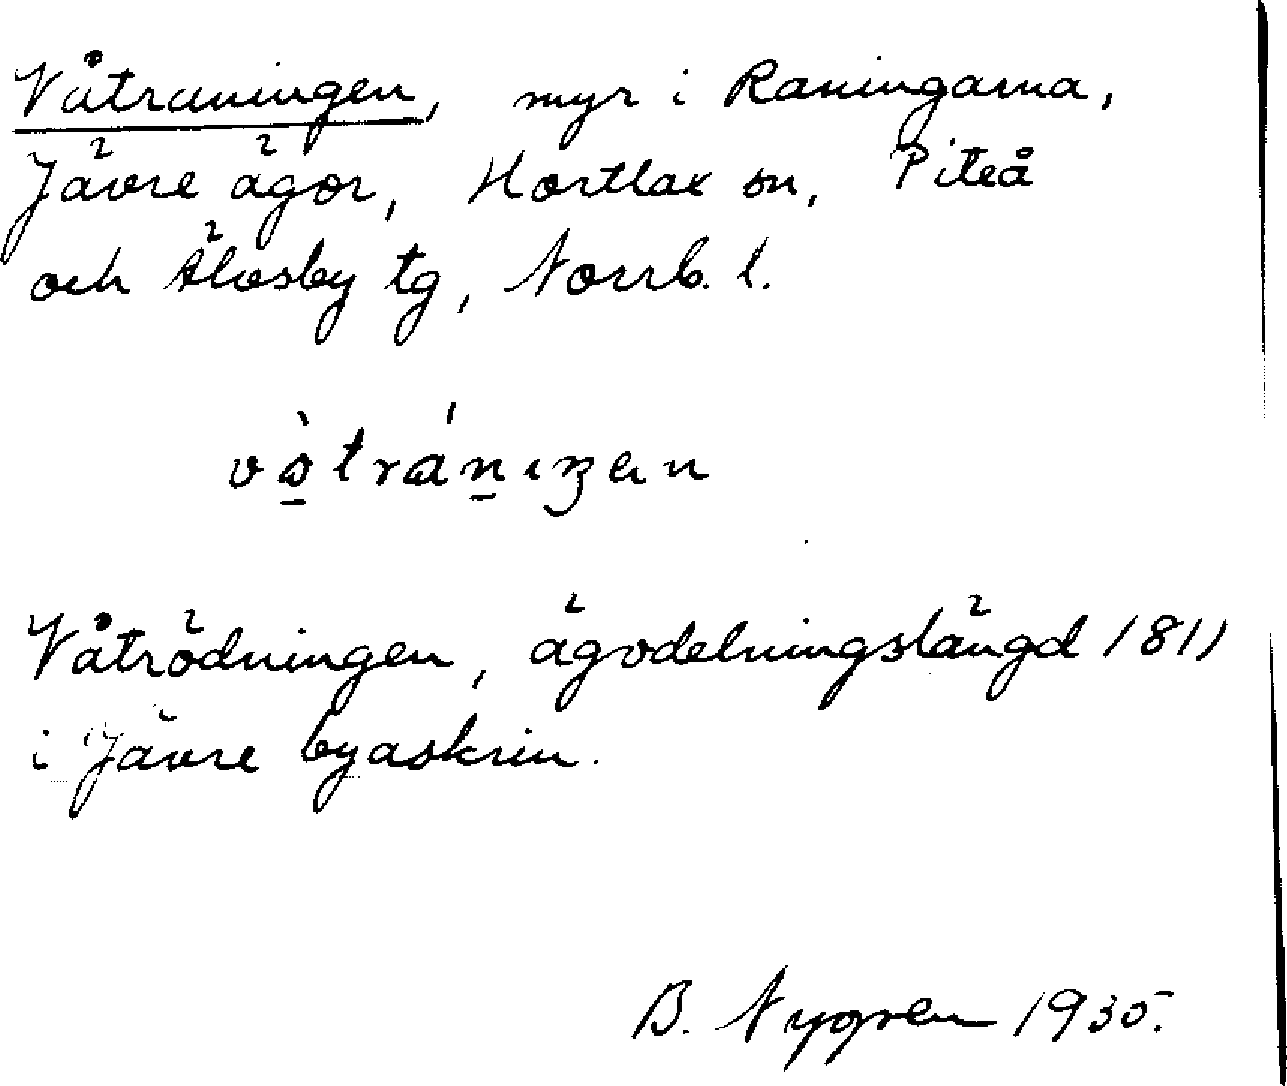 Våtraningen, myr i Raningarna,
Jävre ägor, Hortlax sn, Piteå
och Älvsby tg, Norrb. l.
Våtrödningen, ägodelningslängd 1811
i Jävre byaskrin.
B. Nygren 1935.